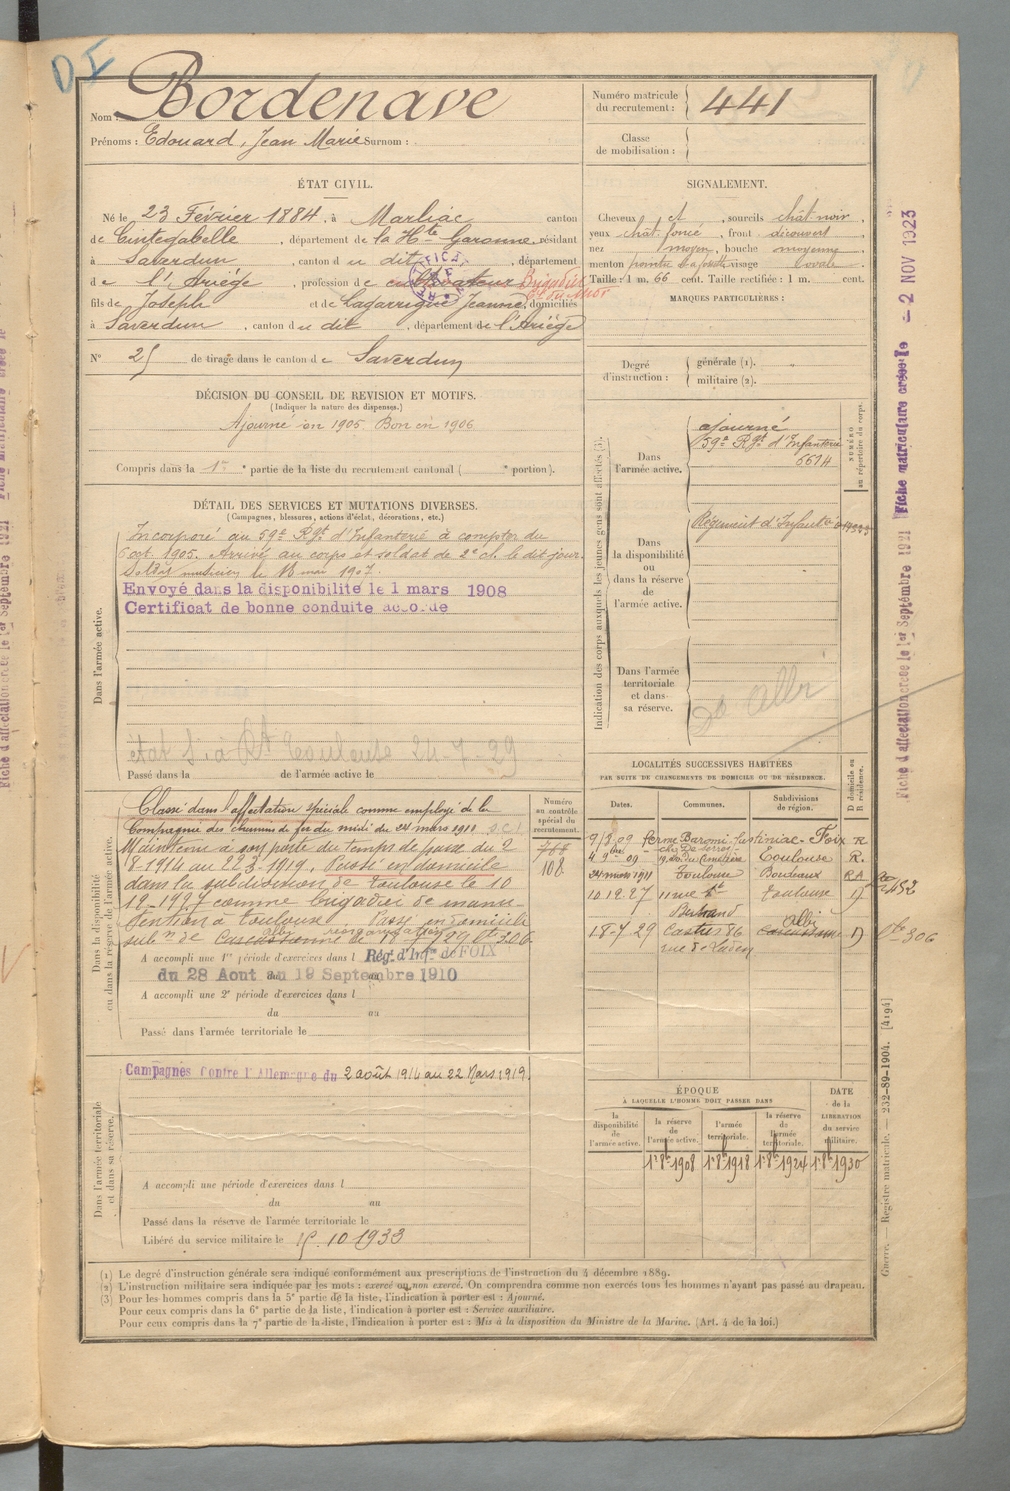 Nom : Bordenave
Prénoms : Edouard, Jean Marie Surnom :
Numéro matricule du recrutement : 441
Classe de mobilisation :
ÉTAT CIVIL.
Né le 23 Février 1884, à Marliac canton
de Cintegabelle, département de la Hte Garonne, résidant
à Saverdun, canton du dit, département
de l'Ariège, profession de cultivateur Brigadier
fils de Joseph et de Lagarrigue Jeanne, domiciliés
à Saverdun, canton du dit, département de l'Ariège
N° 25 de tirage dans le canton de Saverdun
SIGNALEMENT.
Cheveux et, sourcils chât noir,
yeux chât. foncé, front découvert,
nez moyen, bouche moyenne
menton pointu visage ovale.
Taille : 1 m. 66 cent. Taille rectifiée : 1 m. cent.
MARQUES PARTICULIÈRES :
Degré d'instruction : générale (1).
militaire (2).
DÉCISION DU CONSEIL DE REVISION ET MOTIFS.
(Indiquer la nature des dispenses.)
Ajourné en 1905 Bon en 1906
Compris dans la 1re partie de la liste du recrutement cantonal ( portion).
DÉTAIL DES SERVICES ET MUTATIONS DIVERSES.
(Campagnes, blessures, actions d'éclat, décorations, etc.)
Dans l'armée active.
Incorporé au 59e Rgt d'Infanterie à compter du
6 oct. 1905. Arrivé au corps et soldat de 2e cl. le dit jour.
Soldat musicien le 18 mai 1907.
Envoyé dans la disponibilité le 1 mars 1908
Certificat de bonne conduite accordé
Toulouse 24-7-29
Passé dans la de l'armée active le
Indication des corps auxquels les jeunes gens sont affectés (3).
NUMÉRO au répertoire du corps.
Dans l'armée active.
ajourné
59e Rgt d'Infanterie
6614
Dans la disponibilité ou dans la réserve de l'armée active.
Régiment d'Infanterie
Dans l'armée territoriale et dans sa réserve.
Albi
Dans la disponibilité ou dans la réserve de l'armée active.
Classé dans l'affectation spéciale comme employé de la
Compagnie des chemins de fer du midi du 24 mars 1911
Maintenu à son poste du temps de paix du 2
8-1914 au 22-3-1919. Passé en domicile
dans la subdivision de Toulouse le 10
12-1927 comme brigadier de manu-
tention à Toulouse. Passé en domicile
subon de Carcassonne le 18-7-29 306
Numéro au contrôle spécial du recrutement.
768
108
A accompli une 1re période d'exercices dans l Rég. d'Inf. de FOIX
du 28 Aout au 19 Septembre 1910
A accompli une 2e période d'exercices dans l
du au
Passé dans l'armée territoriale le
LOCALITÉS SUCCESSIVES HABITÉES
PAR SUITE DE CHANGEMENTS DE DOMICILE OU DE RÉSIDENCE.
Dates. Communes. Subdivisions de région. D domicile ou R résidence.
9/3 09 ferme Baromi Justiniac Foix R
4 9bre 09 Toulouse R.
24 mars 1911 Toulouse Bordeaux RA
10 12.27 11 rue St Bertrand Toulouse D
18-7 29 Castres 86 Albi Carcassonne D
Dans l'armée territoriale et dans sa réserve.
Campagnes Contre l'Allemagne du 2 août 1914 au 22 Mars 1919.
A accompli une période d'exercices dans l
du au
Passé dans la réserve de l'armée territoriale le
Libéré du service militaire le 15.10 1933
ÉPOQUE
A LAQUELLE L'HOMME DOIT PASSER DANS
la disponibilité de l'armée active. la réserve de l'armée active. l'armée territoriale. la réserve de l'armée territoriale. DATE de la LIBÉRATION du service militaire.
1r 8bre 1908 1r 8bre 1918 1r 8bre 1924 1r 8bre 1930
(1) Le degré d'instruction générale sera indiqué conformément aux prescriptions de l'instruction du 4 décembre 1889.
(2) L'instruction militaire sera indiquée par les mots : exercé ou non exercé. On comprendra comme non exercés tous les hommes n'ayant pas passé au drapeau.
(3) Pour les hommes compris dans la 5e partie de la liste, l'indication à porter est : Ajourné.
Pour ceux compris dans la 6e partie de la liste, l'indication à porter est : Service auxiliaire.
Pour ceux compris dans la 7e partie de la liste, l'indication à porter est : Mis à la disposition du Ministre de la Marine. (Art. 4 de la loi.)
Fiche d'affectation créée le 1er Septembre 1921
Fiche matriculaire créée le - 2 NOV 1923
Guerre. — Registre matricule. — 232-89-1904. [4194]